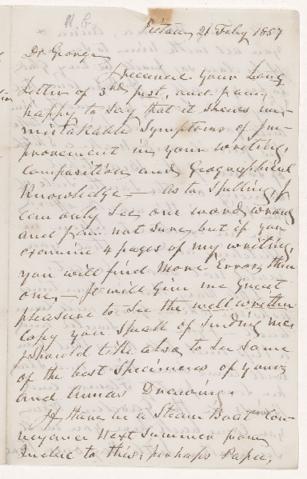 N.B.
Pictou 21 July 1857
Dr George
I received your Long
Letter of 3rd Inst, and I am
happy to say that it shews un-
mistakable Symptoms of Im-
provement in your writing,
Composition and Geographical
Knowledge — as to Spelling, I
Can only see one word wrong
and I am not sure, but if you
examine 4 pages of my writing,
you will find more Errors than
one, — It will Give me Great
pleasure to see the well written
copy you speak of sending me
I should like also to see some
of the best Specimens of yours
and Annas Drawing.
If there is a Steam Boat Con-
veyance Next Summer from
to this, perhaps Papa,